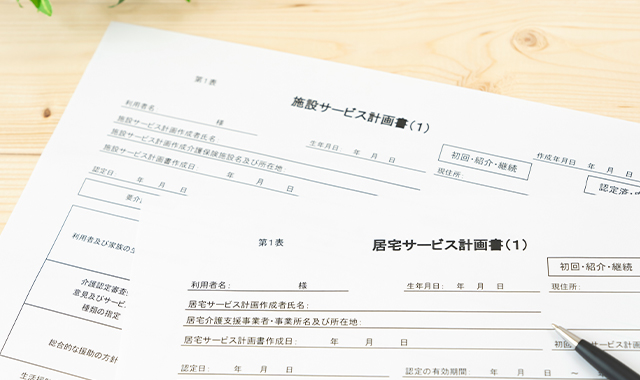 第1表
施設サービス計画書(1)
利用者名 様
生年月日: 年 月 日
初回・紹介・継続
作成年月日 年 月 日
施設サービス計画作成者氏名
現住所:
認定済・
施設サービス計画作成介護保険施設名及び所在地
施設サービス計画書作成日: 年 月 日
認定日: 年 月 日
利用者及び家族の
介護認定審査
意見及びサービ
種類の指定
総合的な援助の方針
第1表
居宅サービス計画書(1)
初回・紹介・継続
利用者名: 様
生年月日: 年 月 日
現住所:
居宅サービス計画作成者氏名:
居宅介護支援事業者・事業所名及び所在地:
居宅サービス計画書作成日: 年 月 日
初回
サービス計画
認定日: 年 月 日
認定の有効期間 年 月 日 ~ 年